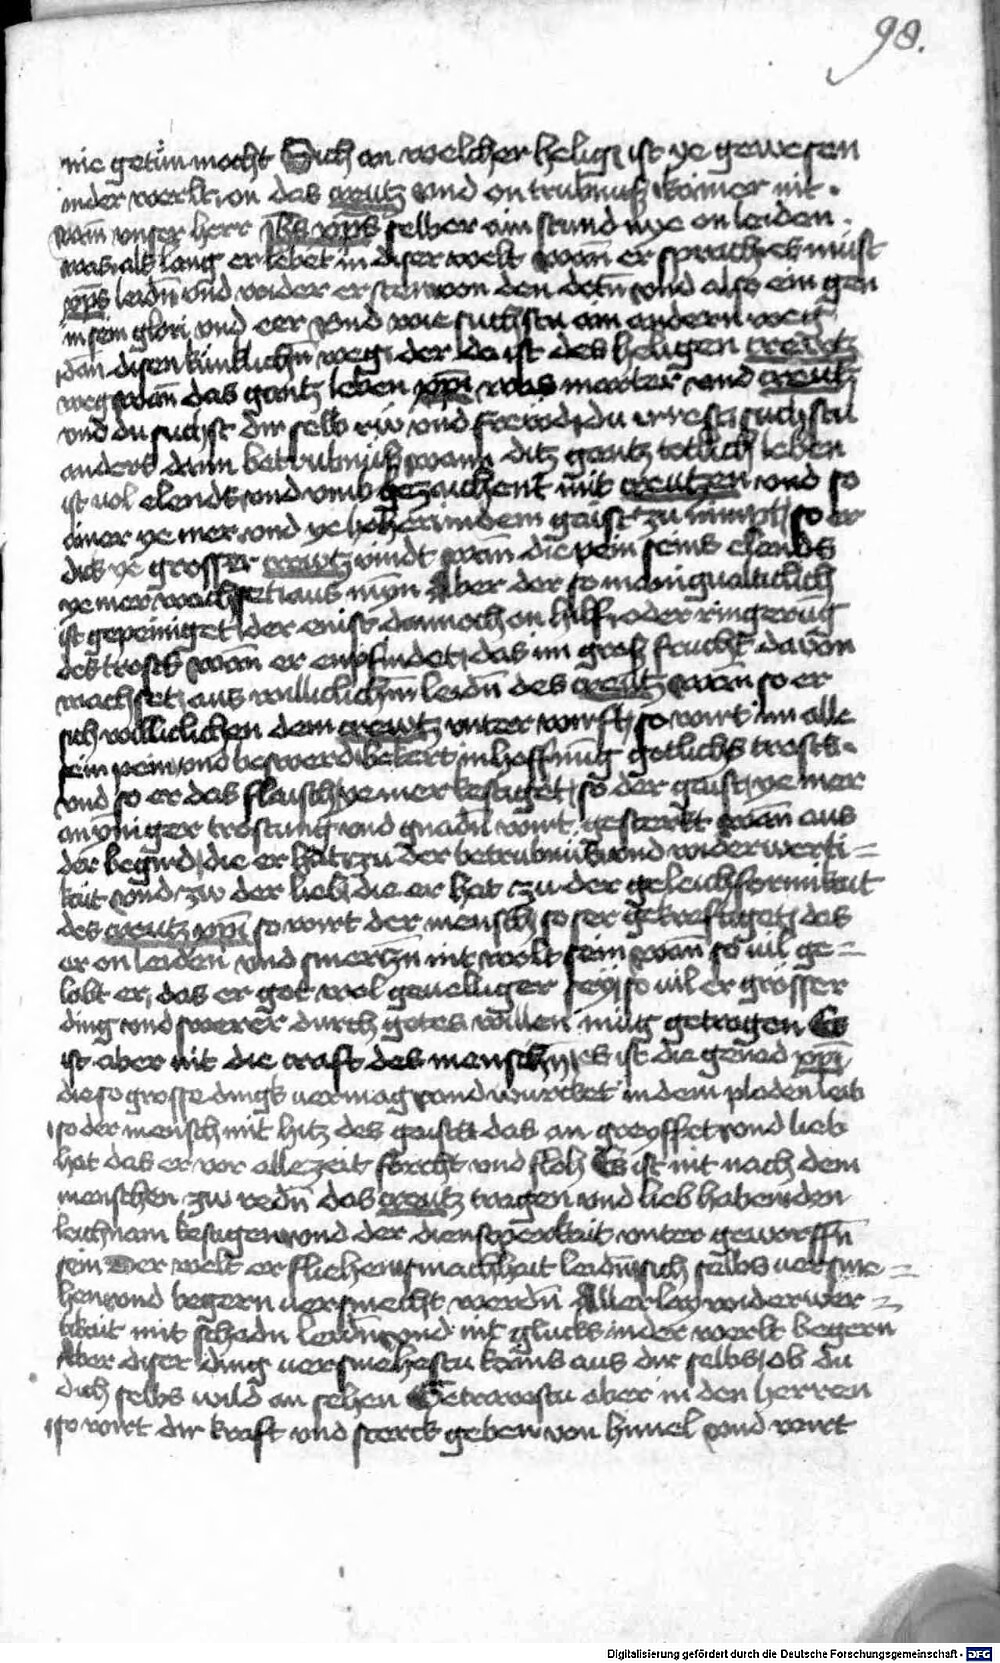 98.
nie getün mocht Sich an welcher helig ist ye gewesen
in der werlt on das creutz vnd on trubnuß kainer nit.
wann vnser herr ihs xps selber ain stund nye on leiden.
was als lang er lebet in diser welt wann er sprach es müst
xps leidn vnd wider ersten von den dotn vnd also ein gen
in sein glori vnd eer vnd wie suchstu ain andern weg
dan disen künklichn weg der da ist des heligen creutz
weg wann das gantz leben xpi was marter vnd creutz
vnd du suchst dir selb rw vnd frewd du irrest suchstu
anders dann betrubnuß wann ditz gantz totlich leben
ist vol elends vnd vmb gezaichent mit creutzen vnd so
ainer ye mer vnd ye hoher in dem gaist zu nimpt so er
dick ye grosser creutz vindt wann die pein seins elends
ye mer wachset aus Aber der so manigualticlich
ist gepeiniget der enist dannoch on hilf oder ringerung
des trosts wann er enpfindet das im groß frucht dauon
wachset aus williclichem leidn des creutz wann so er
sich williclichen dem creutz vnter wurft so wirt im alle
sein pein vnd beswerd bekert in hoffnung gotlichs trosts.
vnd so er das flaisch ye mer kestiget so der gaist ye mer
in yniger trostung vnd gnadn wirt gesterkt wann aus
der begird die er hat zu der betrubnuß vnd widerwerti=
kait vnd zw der lieb die er hat zu der geleichformikait
des creutz xpi so wirt der mensch so ser gekreftiget das
er on leiden vnd smerczn nit wolt sein wann so vil ge=
lobt er das er got wol geuelliger sey so vil er grösser
ding vnd swerer durch gotes willen mug getragen Es
ist aber nit die craft des menschn es ist die genad xpi
die so grosse dingk vermag vnd wurcket in dem ploden leib
so der mensch mit hitz des gaists das an greyffet vnd lieb
hat das er vor allezeit furcht vnd floh Es ist nit nach dem
menschen zw redn das creutz tragen vnd lieb haben den
leichnam kestigen vnd der dienstperkait vnter geworffn
sein Der welt er fliehen smachait leidn sich selbs versme=
hen vnd begern versmecht werdn Allerlay widerwer=
tikait mit schadn leidn vnd nit glucks in der werlt begern
Aber diser ding versmehestu kains aus dir selbs ob du
dich selbs wild an sehen Getrawestu aber in den herren
so wirt dir kraft vnd sterck geben von himel vnd wirt
Digitalisierung gefördert durch die Deutsche Forschungsgemeinschaft - DFG